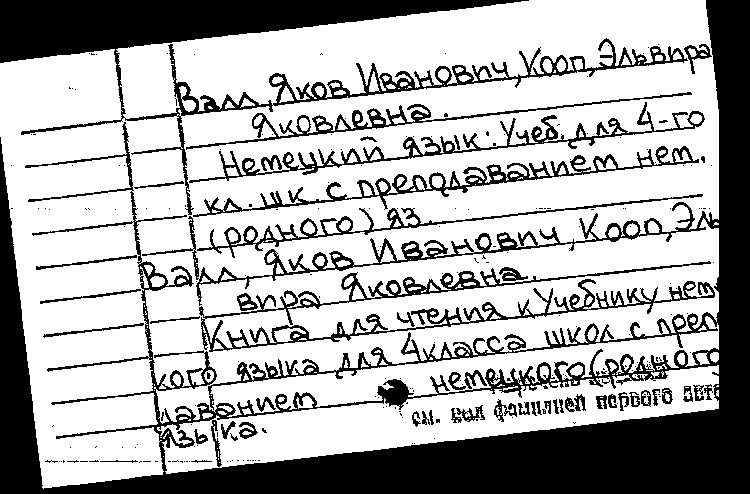 Валл, Яков Иванович, Кооп, Эльвира
Яковлевна.
Немецкий язык: Учеб. для 4-го
кл. шк. с преподаванием нем.
(родного) яз.
Валл, Яков Иванович, Кооп, Эль
вира Яковлевна.
Книга для чтения к Учебнику нем
кого языка для 4 класса школ с преп
даванием немецкого (родного
языка.
см. под фамилией первого авто